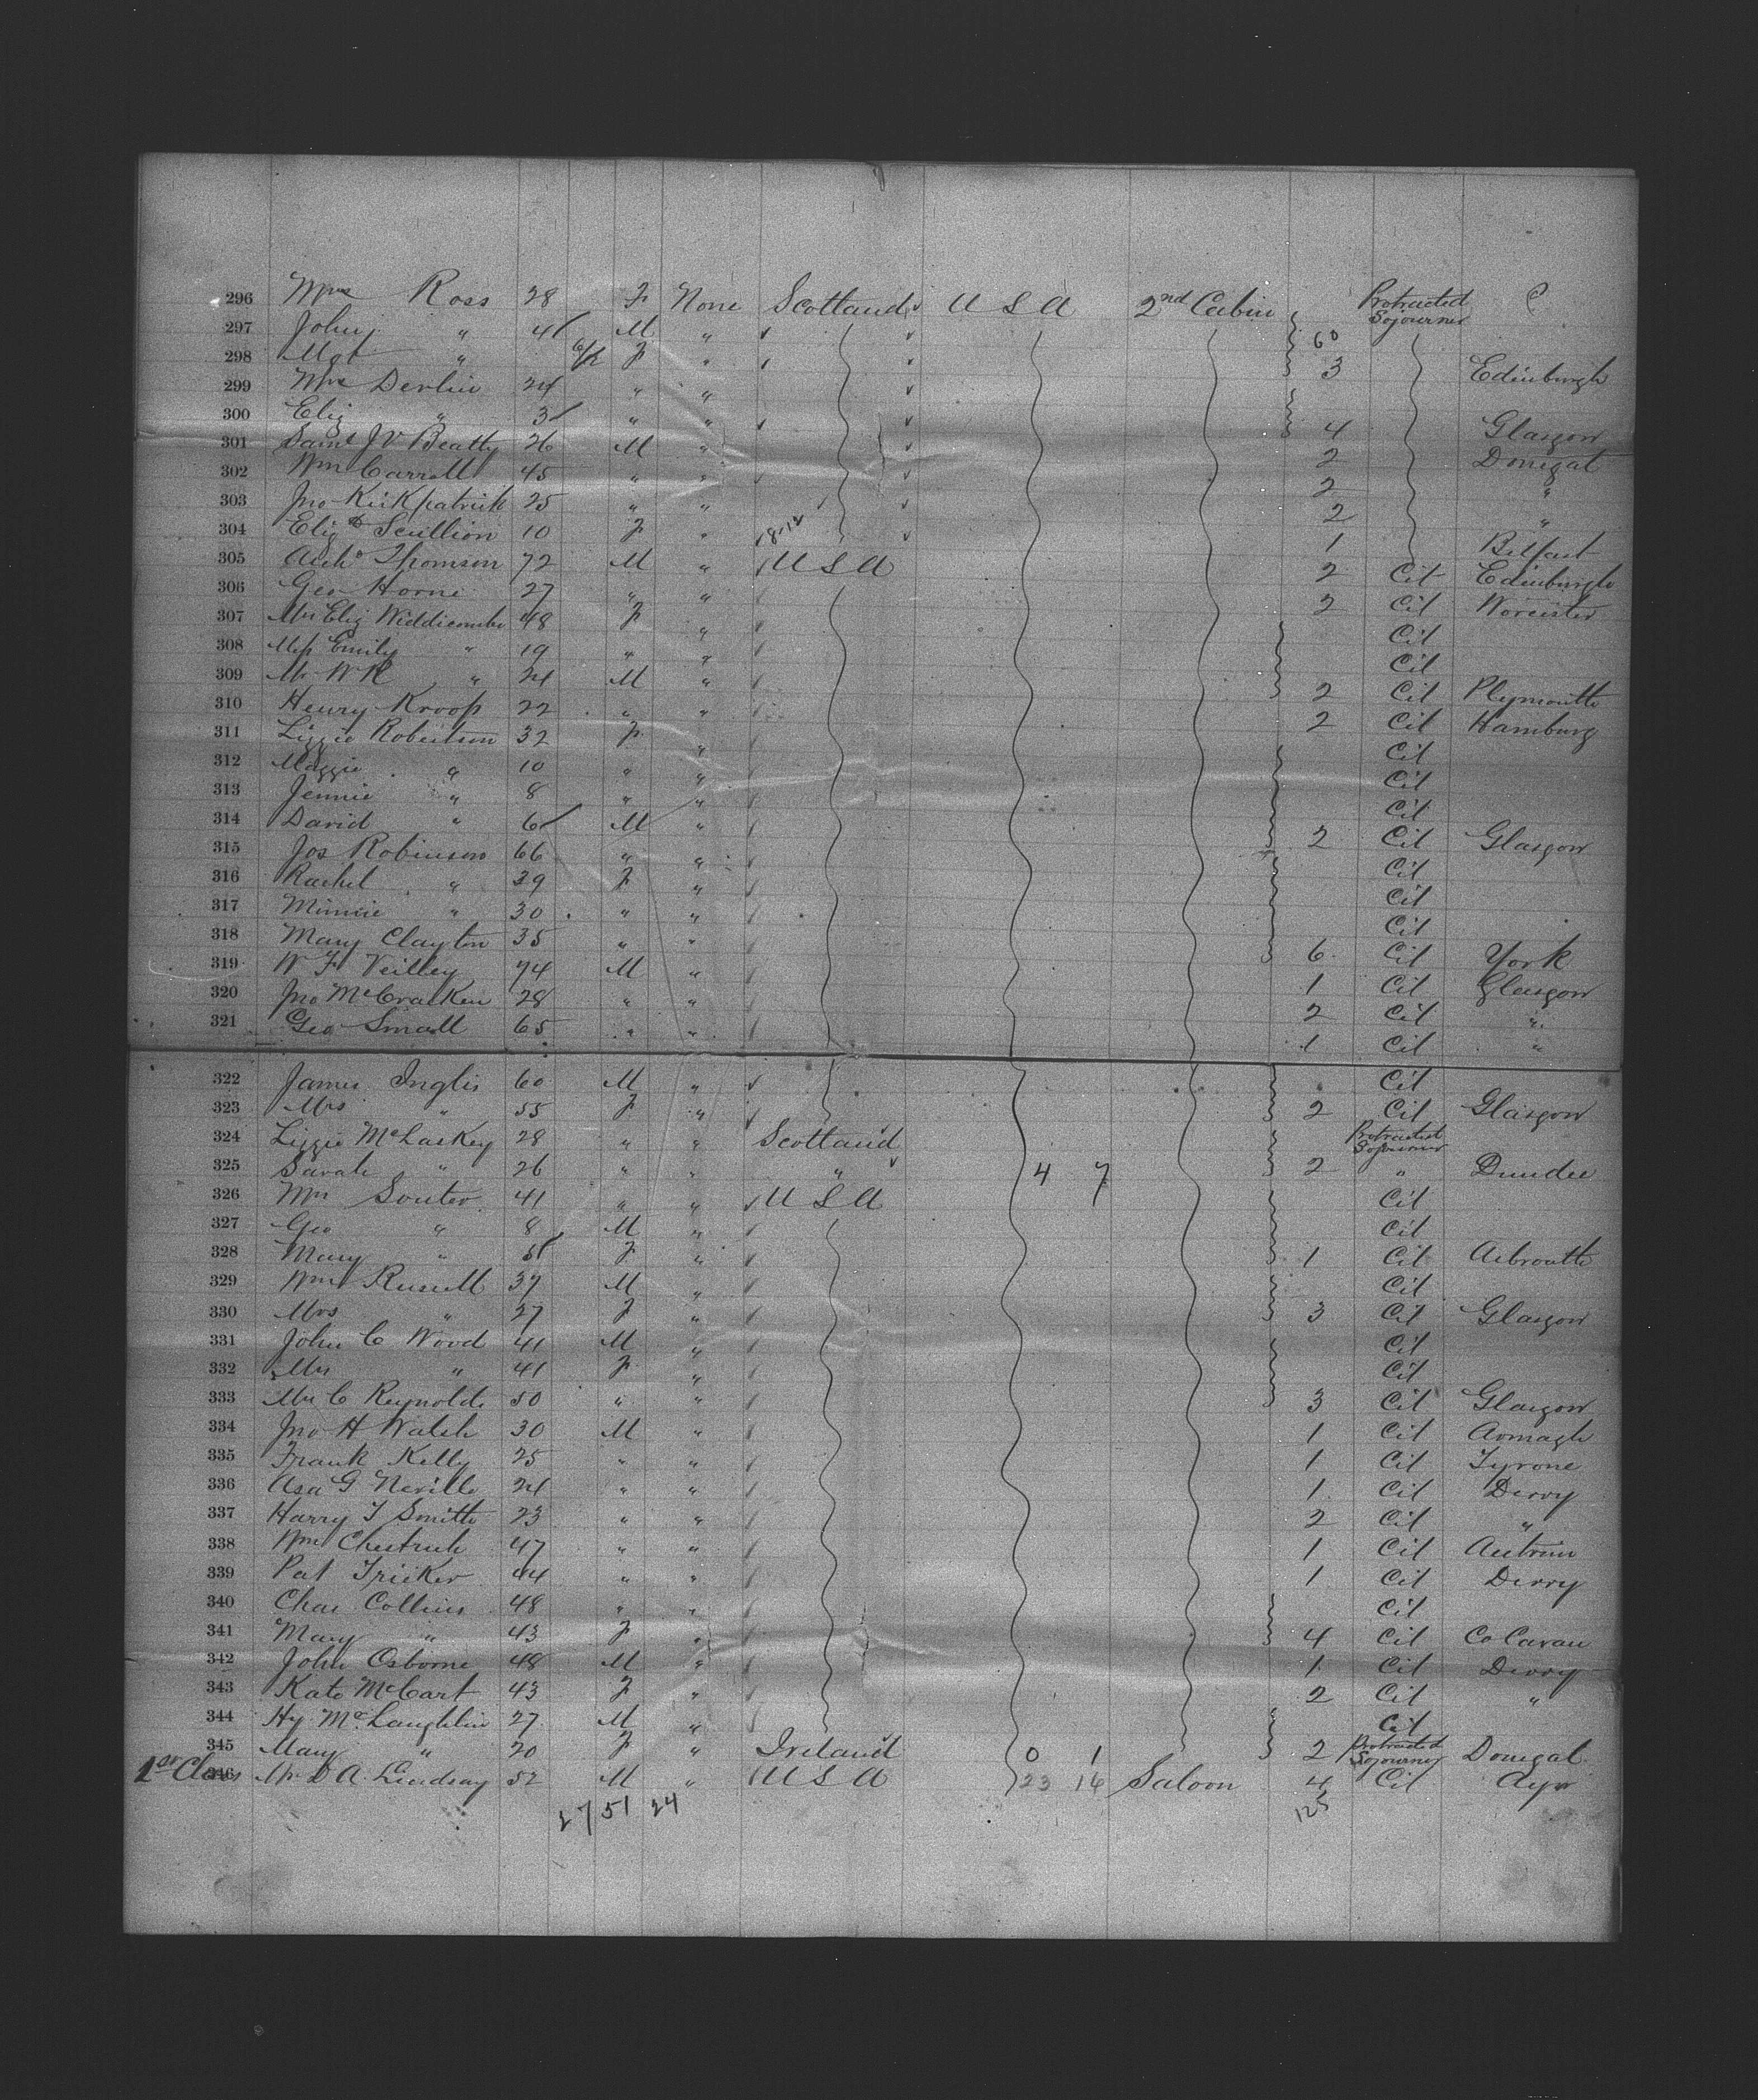 296 Mrs Ross 28 F None Scotland U S A 2nd Cabin Protracted Sojourner
297 John " 4 M " 60
298 Mgt " F " 3 Edinburgh
299 Mrs Devlin 24 " "
300 Eliz " 3 " " 4 Glasgow
301 Saml J V Beatty 26 M " 2 Donegal
302 Wm Carroll 45 " " 2 "
303 Jno Kirkpatrick 25 " " 2 "
304 Elizth Scullion 10 F " 1 Belfast
305 Archd Thomson 72 M " U S A 2 Cit Edinburgh
306 Geo Horne 27 " " 2 Cit Worcister
307 Mrs Eliz Widdicombe 48 F " Cit
308 Miss Emily " 19 " " Cit
309 Mr W R " 24 M " 2 Cit Plymouth
310 Henry Kroop 22 " " 2 Cit Hamburg
311 Lizzie Robertson 32 F " Cit
312 Maggie " 10 " " Cit
313 Jennie " 8 " " Cit
314 David " 6 M " 2 Cit Glasgow
315 Jos Robinson 66 " " Cit
316 Rachel " 39 F " Cit
317 Minnie " 30 " " Cit
318 Mary Clayton 35 " " 6 Cit York
319 W F Veilley 74 M " 1 Cit Glasgow
320 Jno McCracken 28 " " 2 Cit "
321 Geo Small 65 " " 1 Cit "
322 James Inglis 60 M " Cit
323 Mrs " 55 F " 2 Cit Glasgow
324 Lizzie McLaskey 28 " " Scotland Protracted Sojourner
325 Sarah " 26 " " " 4 7 2 " Dundee
326 Mrs Souter 41 " " U S A Cit
327 Geo " 8 M " Cit
328 Mary " 5 F " 1 Cit Arbroath
329 Wm Russell 37 M " Cit
330 Mrs " 27 F " 3 Cit Glasgow
331 John C Wood 41 M " Cit
332 Mrs " 41 F " Cit
333 Mrs C Reynolds 50 " " 3 Cit Glasgow
334 Jno H Walsh 30 M " 1 Cit Armagh
335 Frank Kelly 25 " " 1 Cit Tyrone
336 Asa G Neville 24 " " 1 Cit Derry
337 Harry T Smith 23 " " 2 Cit "
338 Wm Chestnut 47 " " 1 Cit Antrim
339 Pat Tricker 44 " " 1 Cit Derry
340 Chas Collins 48 " " Cit
341 Mary " 43 F " 4 Cit Co Cavan
342 John Osborne 48 M " 1 Cit Derry
343 Kate McCart 43 F " 2 Cit "
344 Hy McLaughlin 27 M " Cit
345 Mary " 20 F " Ireland 0 1 2 Protracted Sojourner Donegal
1st Class 346 Mr D A Lindsay 52 M " U S A 23 14 Saloon 4 Cit Ayr
27 51 24 125